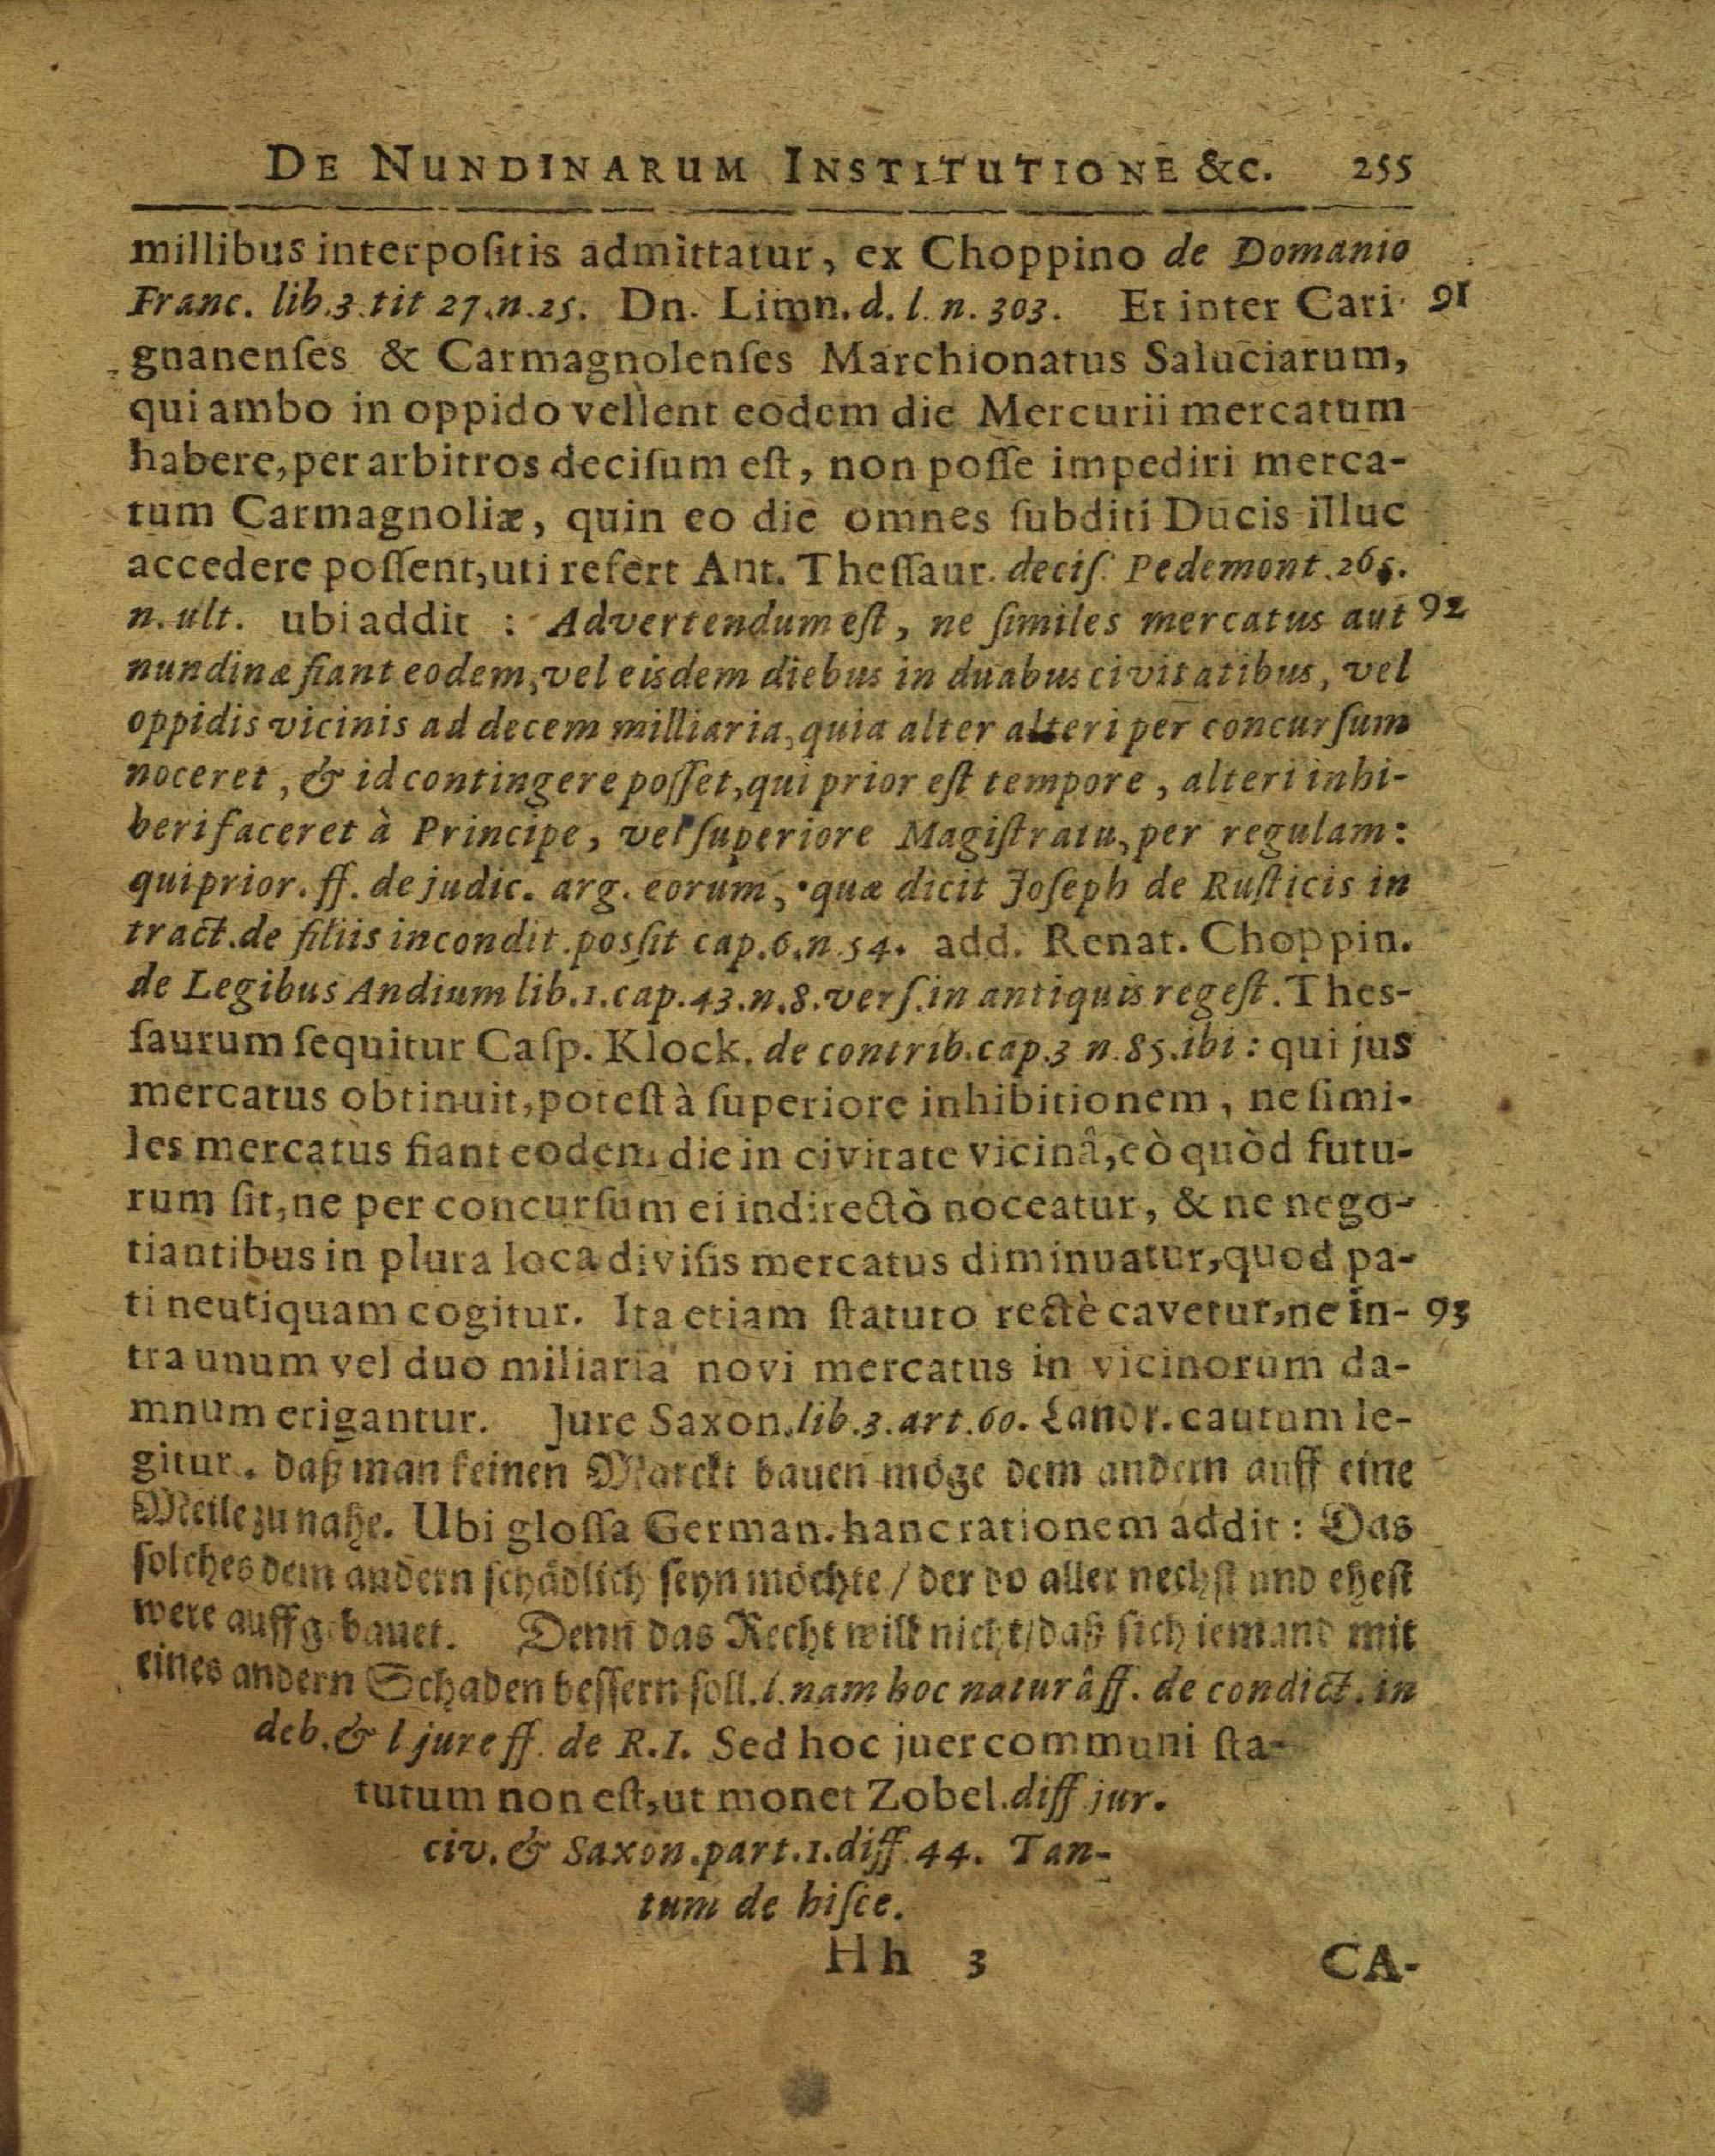 DE NUNDINARUM INSTITUTIONE &c. 255
millibus interpoſitis admittatur, ex Choppino de Domanio
Franc. lib.3.tit 27.n.25. Dn. Limn. d. l. n. 303. Et inter Cari- 91
gnanenſes & Carmagnolenſes Marchionatus Saluciarum,
qui ambo in oppido vellent eodem die Mercurii mercatum
habere, per arbitros deciſum eſt, non poſſe impediri merca-
tum Carmagnoliæ, quin eo die omnes ſubditi Ducis illuc
accedere poſſent, uti refert Ant. Theſſaur. deciſ. Pedemont. 265.
n. ult. ubi addit : Advertendum eſt, ne ſimiles mercatus aut 92
nundinæ fiant eodem, vel eisdem diebus in duabus civitatibus, vel
oppidis vicinis ad decem milliaria, quia alter alteri per concurſum
noceret, & id contingere poſſet, qui prior eſt tempore, alteri inhi-
beri faceret à Principe, vel ſuperiore Magiſtratu, per regulam:
qui prior. ff. de judic. arg. eorum, quæ dicit Joſeph de Ruſticis in
tract. de filiis in condit. posſit cap.6.n.54. add. Renat. Choppin.
de Legibus Andium lib.1.cap.43.n.8.verſ.in antiquis regeſt. Theſ-
ſaurum ſequitur Caſp. Klock. de contrib.cap.3 n.85.ibi: qui jus
mercatus obtinuit, poteſt à ſuperiore inhibitionem, ne ſimi-
les mercatùs fiant eodem die in civitate vicinâ, eò quòd futu-
rum ſit, ne per concurſum ei indirectò noceatur, & ne nego-
tiantibus in plura loca diviſis mercatus diminuatur, quod pa-
ti neutiquam cogitur. Ita etiam ſtatuto rectè cavetur, ne in- 93
tra unum vel duo miliaria novi mercatus in vicinorum da-
mnum erigantur. Jure Saxon. lib.3.art.60. Landr. cautum le-
gitur. daß man keinen Marckt bauen möge dem andern auff eine
Meile zu nahe. Ubi gloſſa German. hanc rationem addit: Das
ſolches dem andern ſchädlich ſeyn möchte / der do aller nechſt und eheſt
were auffgebauet. Denn das Recht will nicht / daß ſich iemand mit
eines andern Schaden beſſern ſoll. l. nam hoc naturâ ff. de condict. in
deb. & l jure ff. de R.I. Sed hoc juer communi ſta-
tutum non eſt, ut monet Zobel. diff jur.
civ. & Saxon. part.1. diff. 44. Tan-
tum de hiſce.
Hh 3 CA-